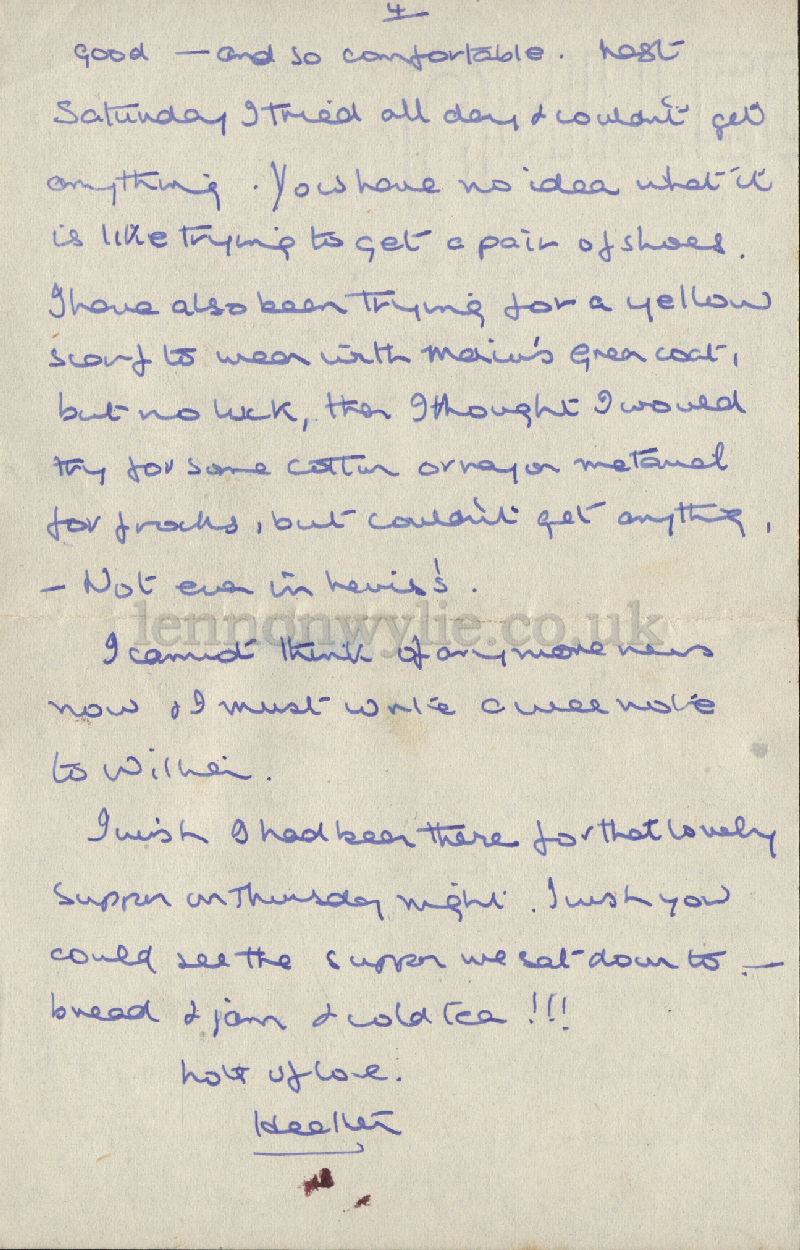 4
good — and so comfortable. Last
Saturday I tried all day & couldn't get
anything. You have no idea what it
is like trying to get a pair of shoes.
I have also been trying for a yellow
scarf to wear with Mairi's Green coat,
but no luck, then I thought I would
try for some cotton or rayon material
for frocks, but couldn't get anything,
— Not even in Lewis's!.
lennonwylie.co.uk
I cannot think of any more news
now & I must write a wee note
to
I wish I had been there for that lovely
supper on Thursday night. I wish you
could see the supper we sat down to —
bread & jam & cold tea!!!
Lots of love.
Heather